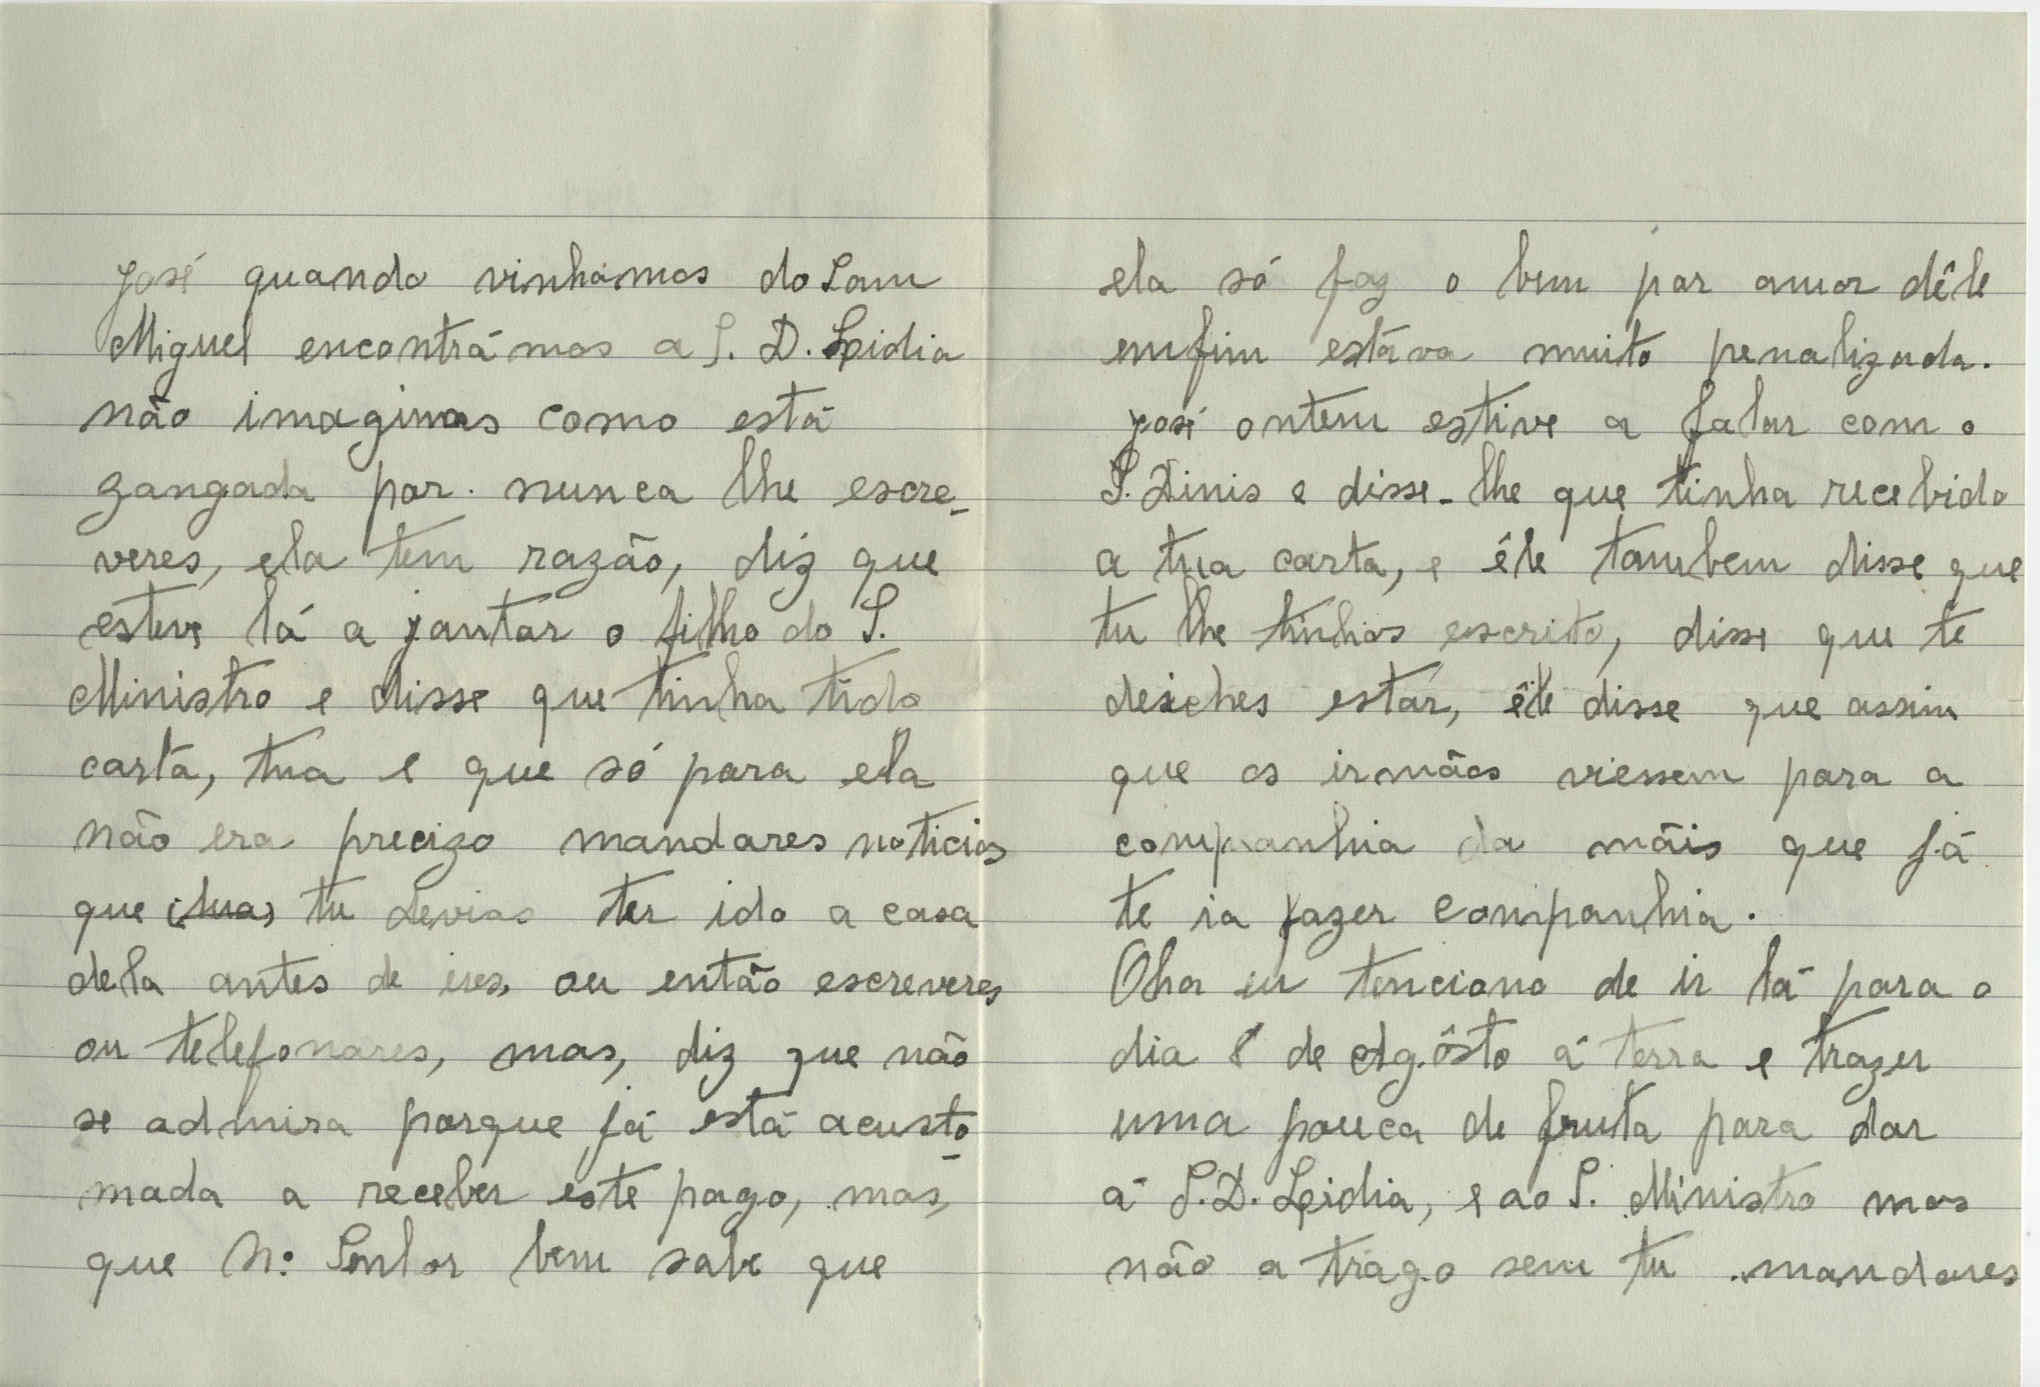 José quando vinhamos do Sam
Miguel encontrámos a S. D. Lpidia
não imaginas como está
zangada por nunca lhe escre-
veres, ela tem razão, diz que
esteve lá a jantar o filho do S.
Ministro e disse que tinha tido
carta, tua e que só para ela
não era precizo mandares noticias
que tu devias ter ido a casa
dela antes de ires, ou então escreveres
ou telefonares, mas, diz que não
se admira porque já está acusto-
mada a receber este pago, mas,
que N.º Senhor bem sabe que
ela só faz o bem por amor dêle
emfim estáva muito penalizada.
José ontem estive a falar com o
S. Dinis e disse-lhe que tinha recebido
a tua carta, e êle tambem disse que
tu lhe tinhas escrito, disse que te
deiches estar, êle disse que assim
que os irmãos viessem para a
companhia da mãis que já
te ia fazer companhia.
Olha eu tenciono de ir lá para o
dia 8 de Agôsto á terra e trazer
uma pouca de fruta para dar
á S. D. Lpidia, e ao S. Ministro mas
não a trago sem tu mandares